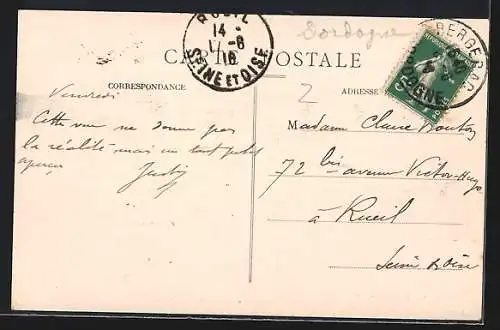 RUEIL
14 -
17-6
10
SEINE ET OISE
Dordogne
BERGERAC
DORDOGNE
CARTE POSTALE
CORRESPONDANCE
ADRESSE
2
Vendredi
Cette vue ne donne pas
la réalité mais un tout petit
aperçu
Madame Claire
72 bis avenue Victor-Hugo
à Rueil
Seine et Oise